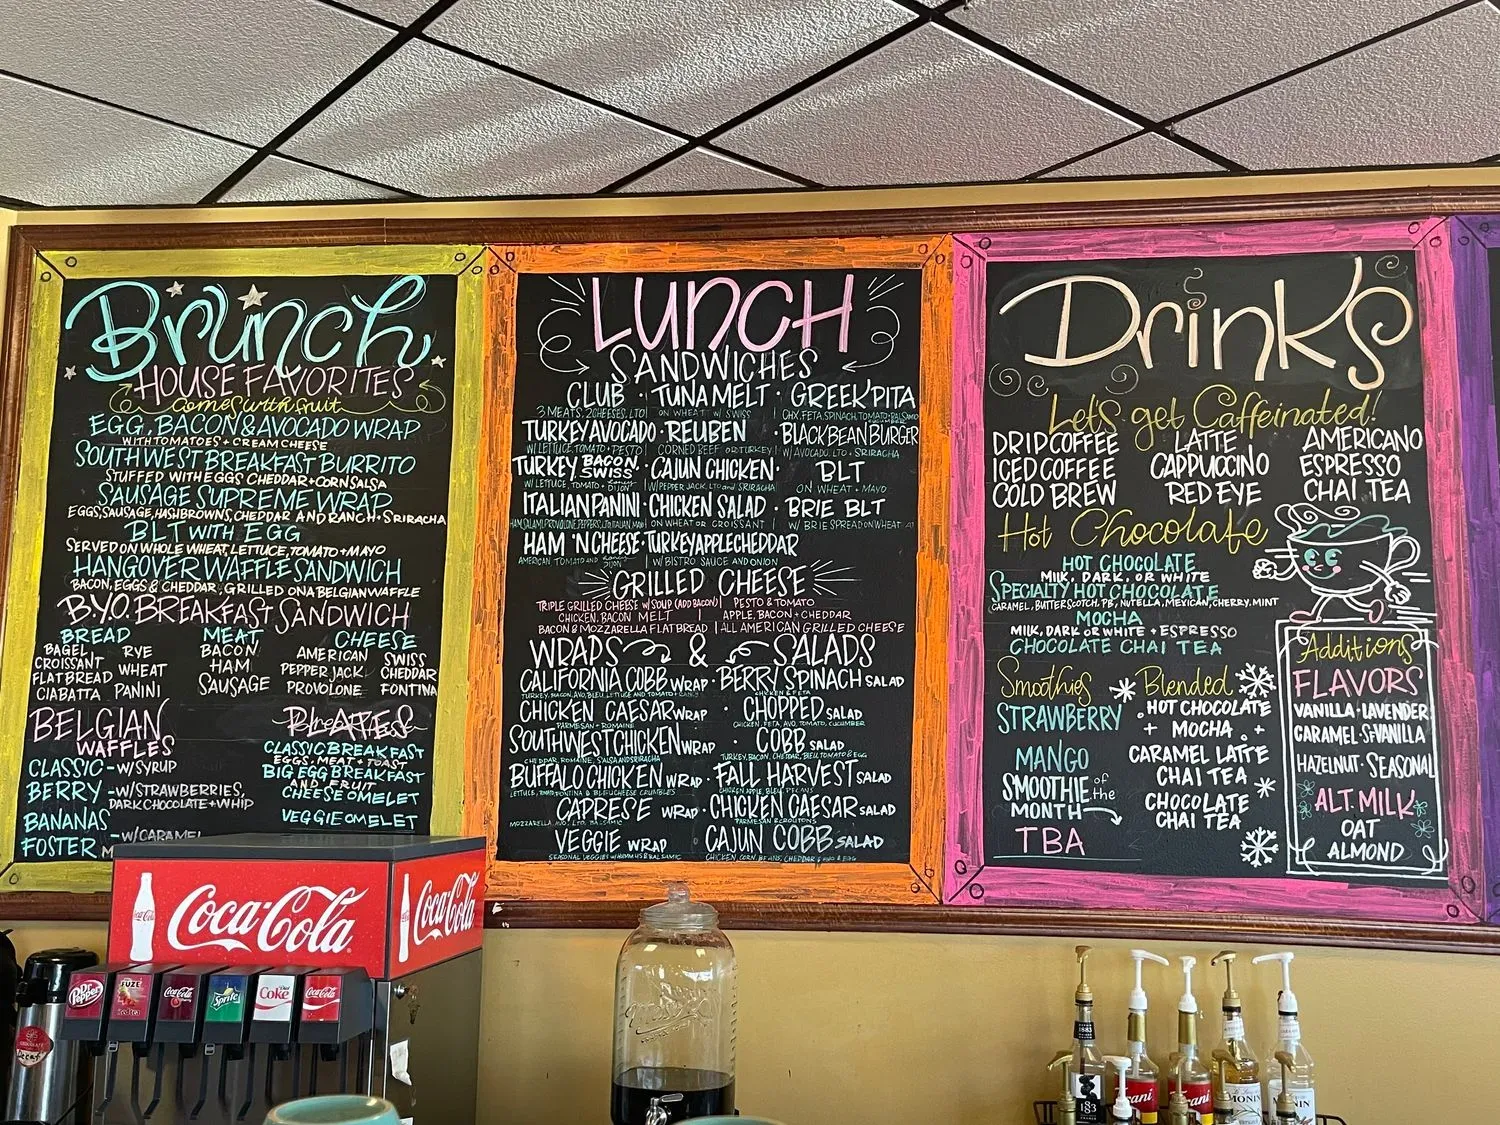 Brunch
HOUSE FAVORITES
Comes with fruit
EGG, BACON & AVOCADO WRAP
WITH TOMATOES + CREAM CHEESE
SOUTHWEST BREAKFAST BURRITO
STUFFED WITH EGGS CHEDDAR + CORN SALSA
SAUSAGE SUPREME WRAP
EGGS, SAUSAGE, HASHBROWNS, CHEDDAR AND RANCH + SRIRACHA
BLT WITH EGG
SERVED ON WHOLE WHEAT, LETTUCE, TOMATO + MAYO
HANGOVER WAFFLE SANDWICH
BACON, EGGS & CHEDDAR, GRILLED ON A BELGIAN WAFFLE
B.Y.O. BREAKFAST SANDWICH
BREAD MEAT CHEESE
BAGEL RYE BACON AMERICAN SWISS
CROISSANT WHEAT HAM PEPPER JACK CHEDDAR
FLATBREAD PANINI SAUSAGE PROVOLONE FONTINA
CIABATTA
BELGIAN
WAFFLES
CLASSIC - W/SYRUP
BERRY - W/STRAWBERRIES,
DARK CHOCOLATE + WHIP
BANANAS
FOSTER - W/CARAMEL
CLASSIC BREAKFAST
EGGS, MEAT + TOAST
BIG EGG BREAKFAST
AND FRUIT
CHEESE OMELET
VEGGIE OMELET
LUNCH
SANDWICHES
CLUB · TUNA MELT · GREEK PITA
3 MEATS, 2 CHEESES, LTO | ON WHEAT W/ SWISS CHX, FETA, SPINACH, TOMATO + BALSAMIC
CUCUMBER
TURKEY AVOCADO · REUBEN · BLACK BEAN BURGER
W/ LETTUCE, TOMATO + PESTO CORNED BEEF OR TURKEY W/ AVOCADO, LTO + SRIRACHA
TURKEY BACON SWISS · CAJUN CHICKEN · BLT
W/ LETTUCE, TOMATO + DIJON W/ PEPPER JACK, LTO and SRIRACHA ON WHEAT + MAYO
ITALIAN PANINI · CHICKEN SALAD · BRIE BLT
HAM, SALAMI, PROVOLONE, PEPPERS, LTO, ITALIAN ON WHEAT OR CROISSANT W/ BRIE SPREAD ON WHEAT
HAM 'N CHEESE · TURKEY APPLE CHEDDAR
AMERICAN TOMATO AND DIJON W/ BISTRO SAUCE AND ONION
GRILLED CHEESE
TRIPLE GRILLED CHEESE W/ SOUP (ADD BACON) | PESTO & TOMATO
CHICKEN, BACON MELT APPLE, BACON + CHEDDAR
BACON & MOZZARELLA FLATBREAD | ALL AMERICAN GRILLED CHEESE
WRAPS & SALADS
CALIFORNIA COBB WRAP · BERRY SPINACH SALAD
TURKEY, BACON, AVO, BLEU, LETTUCE AND TOMATO CHICKEN & FETA
CHICKEN CAESAR WRAP · CHOPPED SALAD
PARMESAN + ROMAINE CHICKEN, FETA, AVO, TOMATO, CUCUMBER
SOUTHWEST CHICKEN WRAP · COBB SALAD
CHEDDAR, ROMAINE, SALSA AND SRIRACHA TURKEY, BACON, CHEDDAR, BLEU, TOMATO & EGG
BUFFALO CHICKEN WRAP · FALL HARVEST SALAD
LETTUCE, BLEUCHEESE CRUMBLES CHICKEN, APPLE, BLEU, PECANS
CAPRESE WRAP · CHICKEN CAESAR SALAD
MOZZARELLA, AVO, LTO, BALSAMIC PARMESAN & CROUTONS
VEGGIE WRAP CAJUN COBB SALAD
SEASONAL VEGGIES W/ HUMMUS & BALSAMIC CHICKEN, CORN, BEANS, CHEDDAR & EGG
Drinks
Let's get Caffeinated!
DRIP COFFEE LATTE AMERICANO
ICED COFFEE CAPPUCCINO ESPRESSO
COLD BREW RED EYE CHAI TEA
Hot Chocolate
HOT CHOCOLATE
MILK, DARK, OR WHITE
SPECIALTY HOT CHOCOLATE
CARAMEL, BUTTERSCOTCH, PB, NUTELLA, MEXICAN, CHERRY, MINT
MOCHA
MILK, DARK OR WHITE + ESPRESSO
CHOCOLATE CHAI TEA
Smoothies
STRAWBERRY
MANGO
SMOOTHIE of the
MONTH
TBA
Blended
HOT CHOCOLATE
MOCHA
CARAMEL LATTE
CHAI TEA
CHOCOLATE
CHAI TEA
Additions
FLAVORS
VANILLA · LAVENDER
CARAMEL · SF VANILLA
HAZELNUT · SEASONAL
ALT. MILK
OAT
ALMOND
Coca-Cola
Coca-Cola
Dr Pepper
FUZE
Coca-Cola
Sprite
Diet Coke
Coca-Cola
Decaf
1883
1883